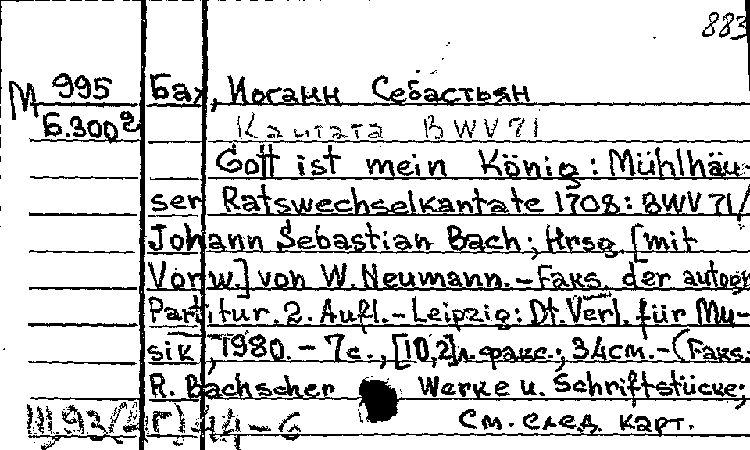 883
М 995 Бах, Иоганн Себастьян
Б.300г Кантата BWV 71
Gott ist mein König: Mühlhäu-
ser Ratswechselkantate 1708: BWV 71/
Johann Sebastian Bach; Hrsg. [mit
Vorw.] von W. Neumann. - Faks. der autogr
Partitur. 2. Aufl. - Leipzig: Dt. Verl. für Mu-
sik, 1980. - 7 с., [10,2]л. факс.; 34см. - (Faks.
R. Bachscher Werke u. Schriftstücke;
см. след. карт.